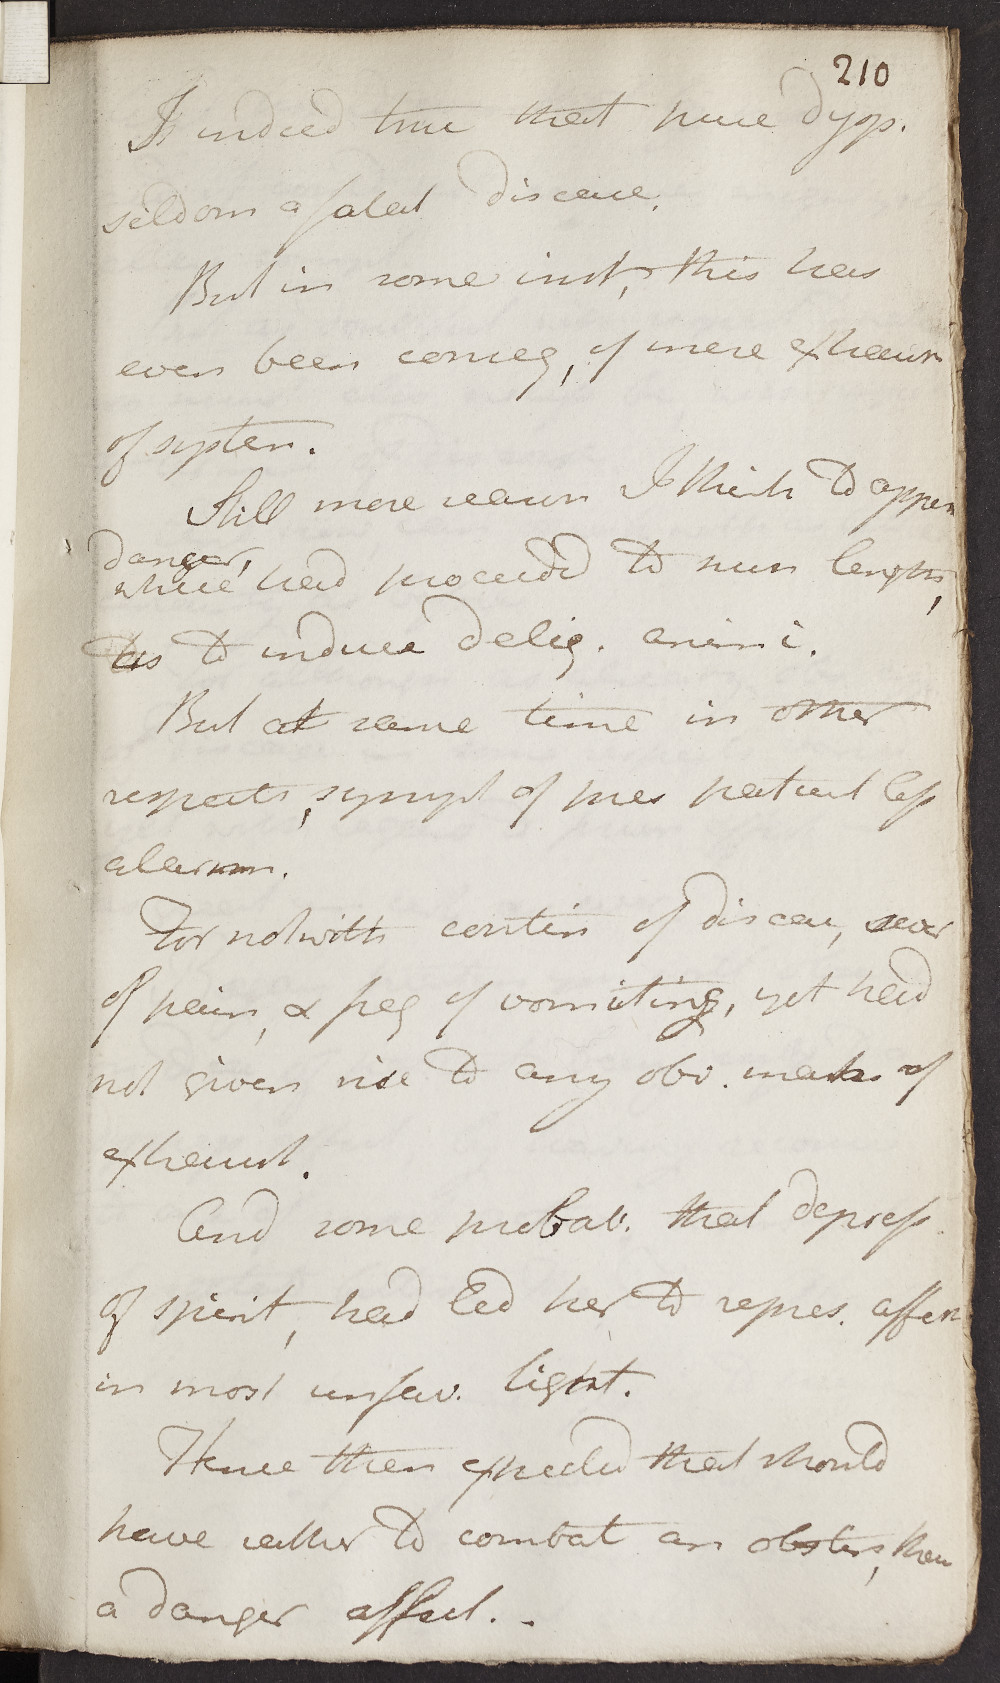 210
Is indeed true that pure dysp.
seldom a fatal disease.
But in some inst, this has
even been conseq, of mere exhaust
of system.
Still more reason I think to appen
danger,
where had proceeded to such length,
as to induce deliq. animi.
But at same time in other
respects, sympt of pres patient less
alarm.
For notwith contin of disease, sever
of pain, & freq of vomiting, yet had
not given rise to any obv. marks of
exhaust.
And some probab. that depress
of spirit, had led her to repres. affect
in most unfav. light.
Hence then expected that should
have rather to combat an obstin, than
a danger affect.